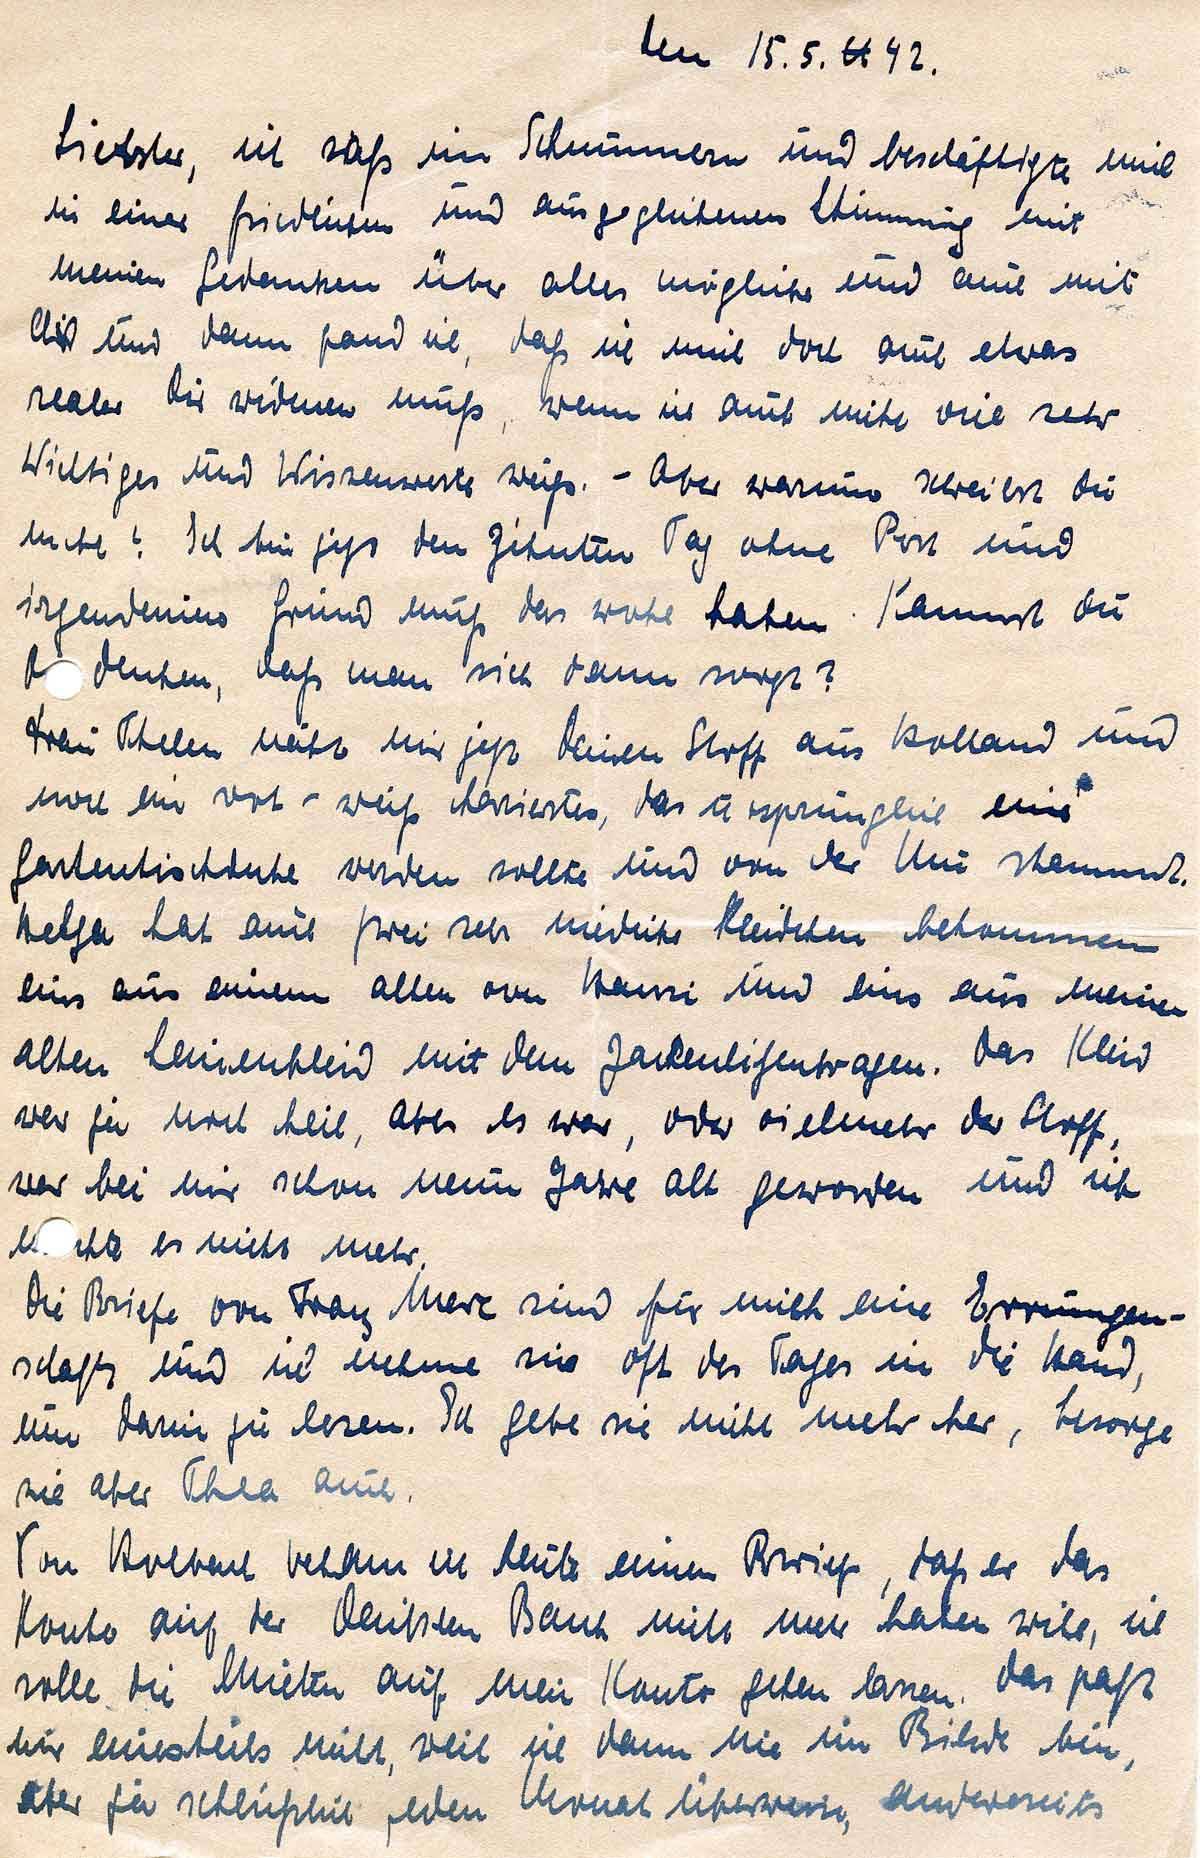 den 15.5. 42.
Liebster, ich saß im Schummern und beschäftigte mich
in einer friedlichen und ausgeglichenen Stimmung mit
meinen Gedanken über alles mögliche und auch mit
Dir und dann fand ich, daß ich mich doch auch etwas
realer Dir widmen muß, wenn ich auch nicht viel sehr
Wichtiges und Wissenswerte weiß. - Aber warum schreibst Du
nicht? Ich bin jetzt den zehnten Tag ohne Post und
irgendeinen Grund muß das wohl haben. Kannst Du
denken, daß man sich dann sorgt?
Frau Thelen näht mir jetzt Deinen Stoff aus Holland und
noch ein rot-weiß kariertes, das ursprünglich eine
Gartentischdecke werden sollte und von der stammt.
Helga hat auch zwei sehr niedliche Kleidchen bekommen
eins aus einem alten von Hansi und eins aus meinem
alten Leinenkleid mit dem Zackenlitzenkragen. Das Kleid
war ja noch heil, aber es war, oder vielmehr der Stoff,
war bei mir schon neun Jahre alt geworden und ich
mochte es nicht mehr.
Die Briefe von Franz Marc sind für mich eine Errungen-
schaft und ich nehme sie oft des Tages in die Hand,
um darin zu lesen. Ich gebe sie nicht mehr her, besorge
sie aber Thea auch.
Von bekam ich heute einen Brief, daß er das
Konto auf der Deutschen Bank nicht mehr haben will, ich
solle die Mieten auf mein Konto gehen lassen. Das paßt
mir einesteils nicht, weil ich dann nie im Bilde bin,
aber ja schließlich jeden Monat überweise, andererseits